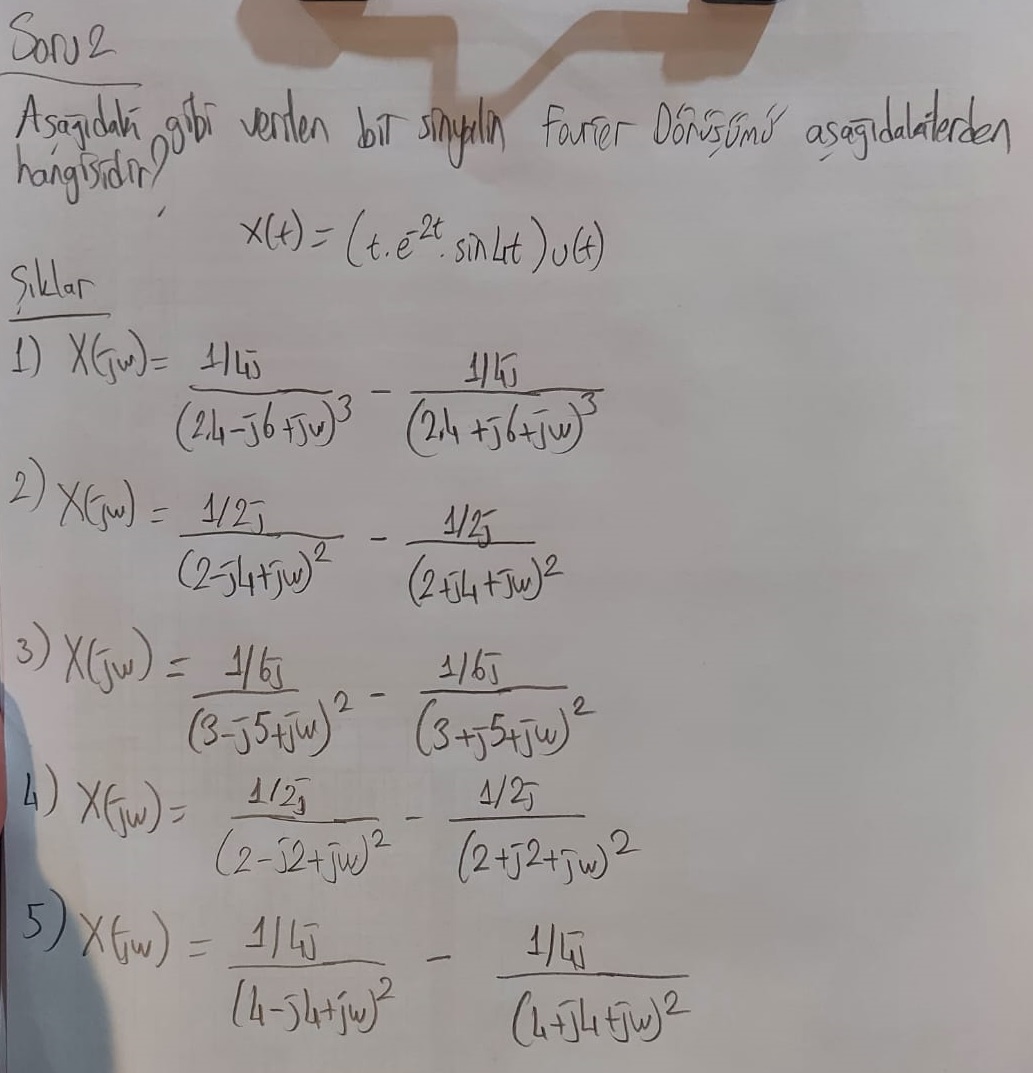 Soru 2
Aşağıdaki gibi verilen bir sinyalin Fourier Dönüşümü aşağıdakilerden
hangisidir?
x(t) = (t.e^-2t . sin4t)u(t)
Şıklar
1) X(jw) = 1/4j / (2,4-j6+jw)^3 - 1/4j / (2,4+j6+jw)^3
2) X(jw) = 1/2j / (2-j4+jw)^2 - 1/2j / (2+j4+jw)^2
3) X(jw) = 1/6j / (3-j5+jw)^2 - 1/6j / (3+j5+jw)^2
4) X(jw) = 1/2j / (2-j2+jw)^2 - 1/2j / (2+j2+jw)^2
5) X(jw) = 1/4j / (4-j4+jw)^2 - 1/4j / (4+j4+jw)^2